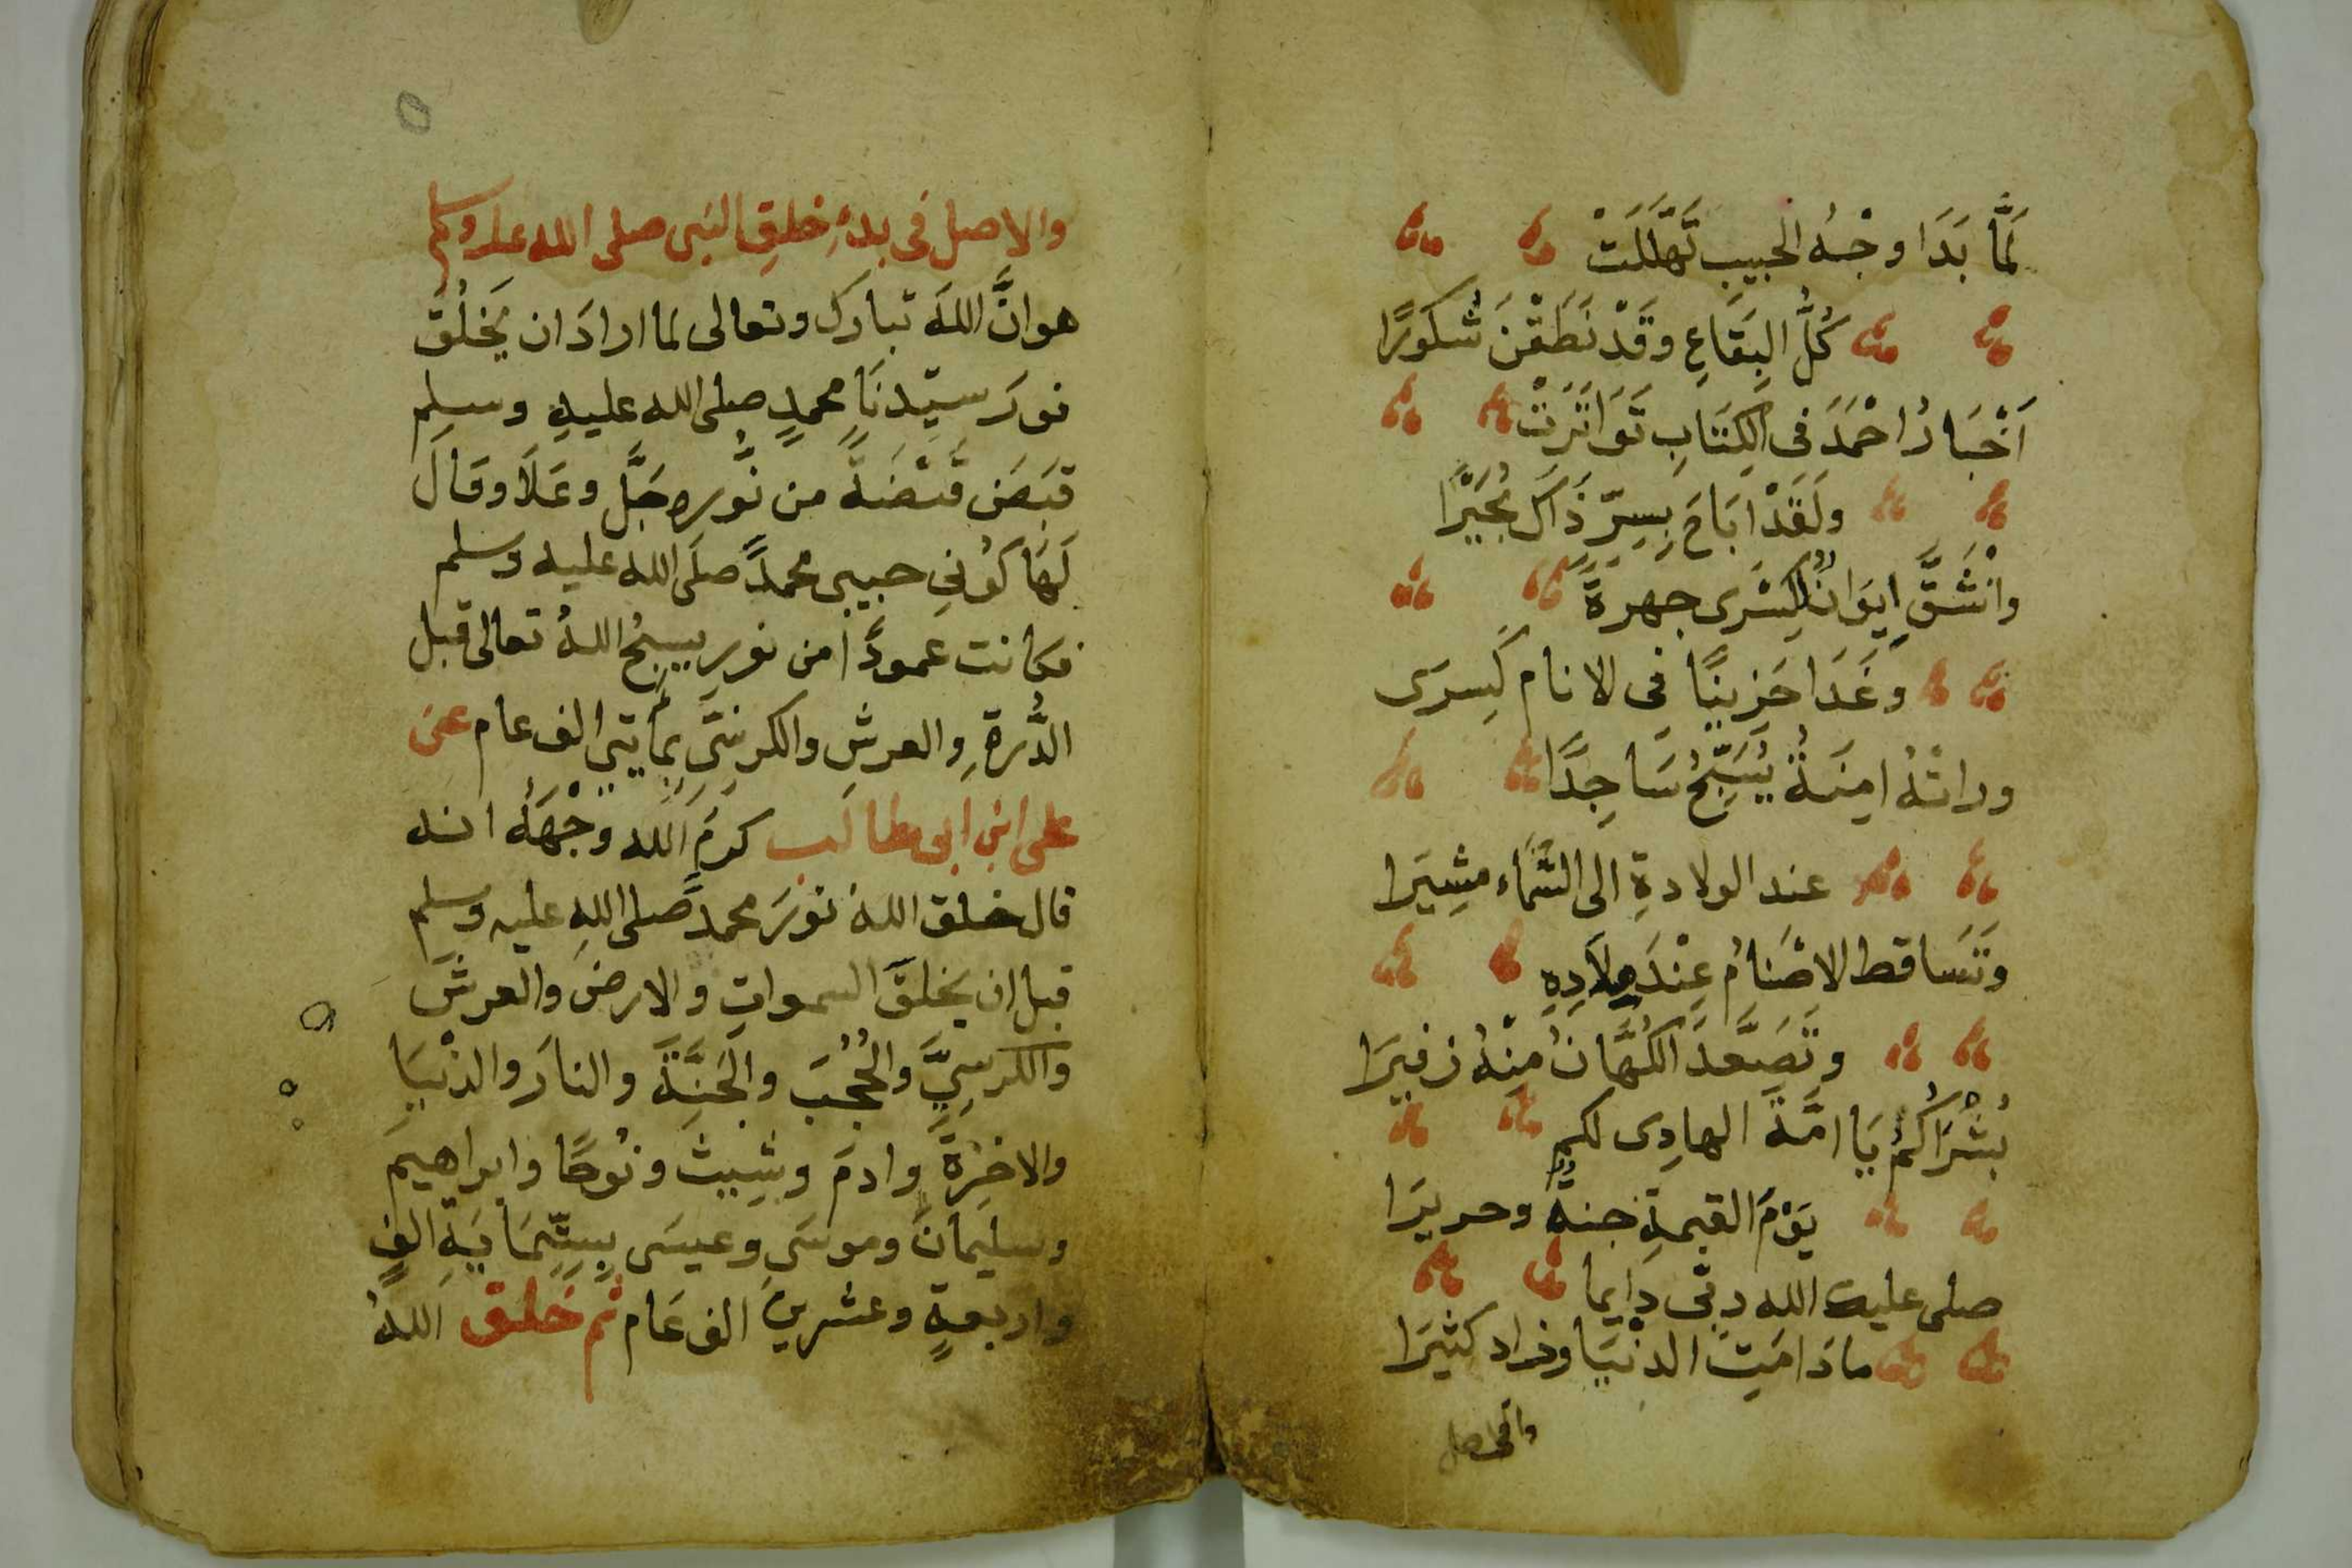 لَمَّا بَدَا وجْهُ الحَبِيبِ تَهَلَّلَتْ
كُلُّ البِقَاعِ وقَدْ نَطَقْنَ شَكُورًا
اَخْبَارُ احْمَدَ فى الكِتَابِ تَوَاتَرَتْ
ولَقَدْ ابَاحَ بِسِرِّ ذَاكَ بُحَيْرًا
وانْشَقَّ اِيوَانٌ لِكِسْرى جهرةً
وغَدَا حَزِينًا فى الانام كَسِيرَى
وراتْهُ امِنَةُ يُسَبِّحُ سَاجِدًا
عند الولادةِ الى السَّمَاء مشِيَرا
وتَسَاقط الاصْنَامُ عِنْدَ ولادِهِ
وتَصَعَّدَ الكُهَّانُ مِنْهُ زفيرَا
بُشْرَاكُمُ يَا امَّةَ الهادِى لكم
يَوْمَ القيمةِ جنةٌ وحريرَا
صلى عليه الله ربّى دايما
مادَامَتِ الدنْيَا وزاد كثيَرا
والاصل فى بدءِ خلقِ النبى صلى الله عليه وسلم
هو انَّ اللهَ تبارك وتعالى لما ارادَ ان يَخلُقَ
نورَ سيّدنَا محمدٍ صلى الله عليهِ وسلم
قبَضَ قَبْضَةً من نُّورِه جَلَّ وعَلَا وقَالَ
لَهَا كُونِى حبيبى محمدًا صلَى الله عليه وسلم
فكانت عمودًا من نورٍ يسبحُ اللهُ تعالى قبل
الدُّرةِ والعرشِ والكرسِّيِ بمأيتي الف عام عن
على ابنِ ابى طالب كرمَ الله وجْهَهُ انه
قال خلق اللهُ نورَ محمدٍ صلى اللهِ عليه وسلم
قبل ان يخلقَ السمواتِ والارضَ والعرشَ
والكرسِيَّ والحُجُبَ والجَنَّةَ والنارَ والدنْيَا
والاخِرَةَ وادمَ وشِيثَ ونُوحًا وابراهيمَ
وسليمانَ وموسَى وعيسَى بِسِتِّمَايَةِ الفٍ
واربعةٍ وعشرينَ الف عَام ثم خلق اللهُ